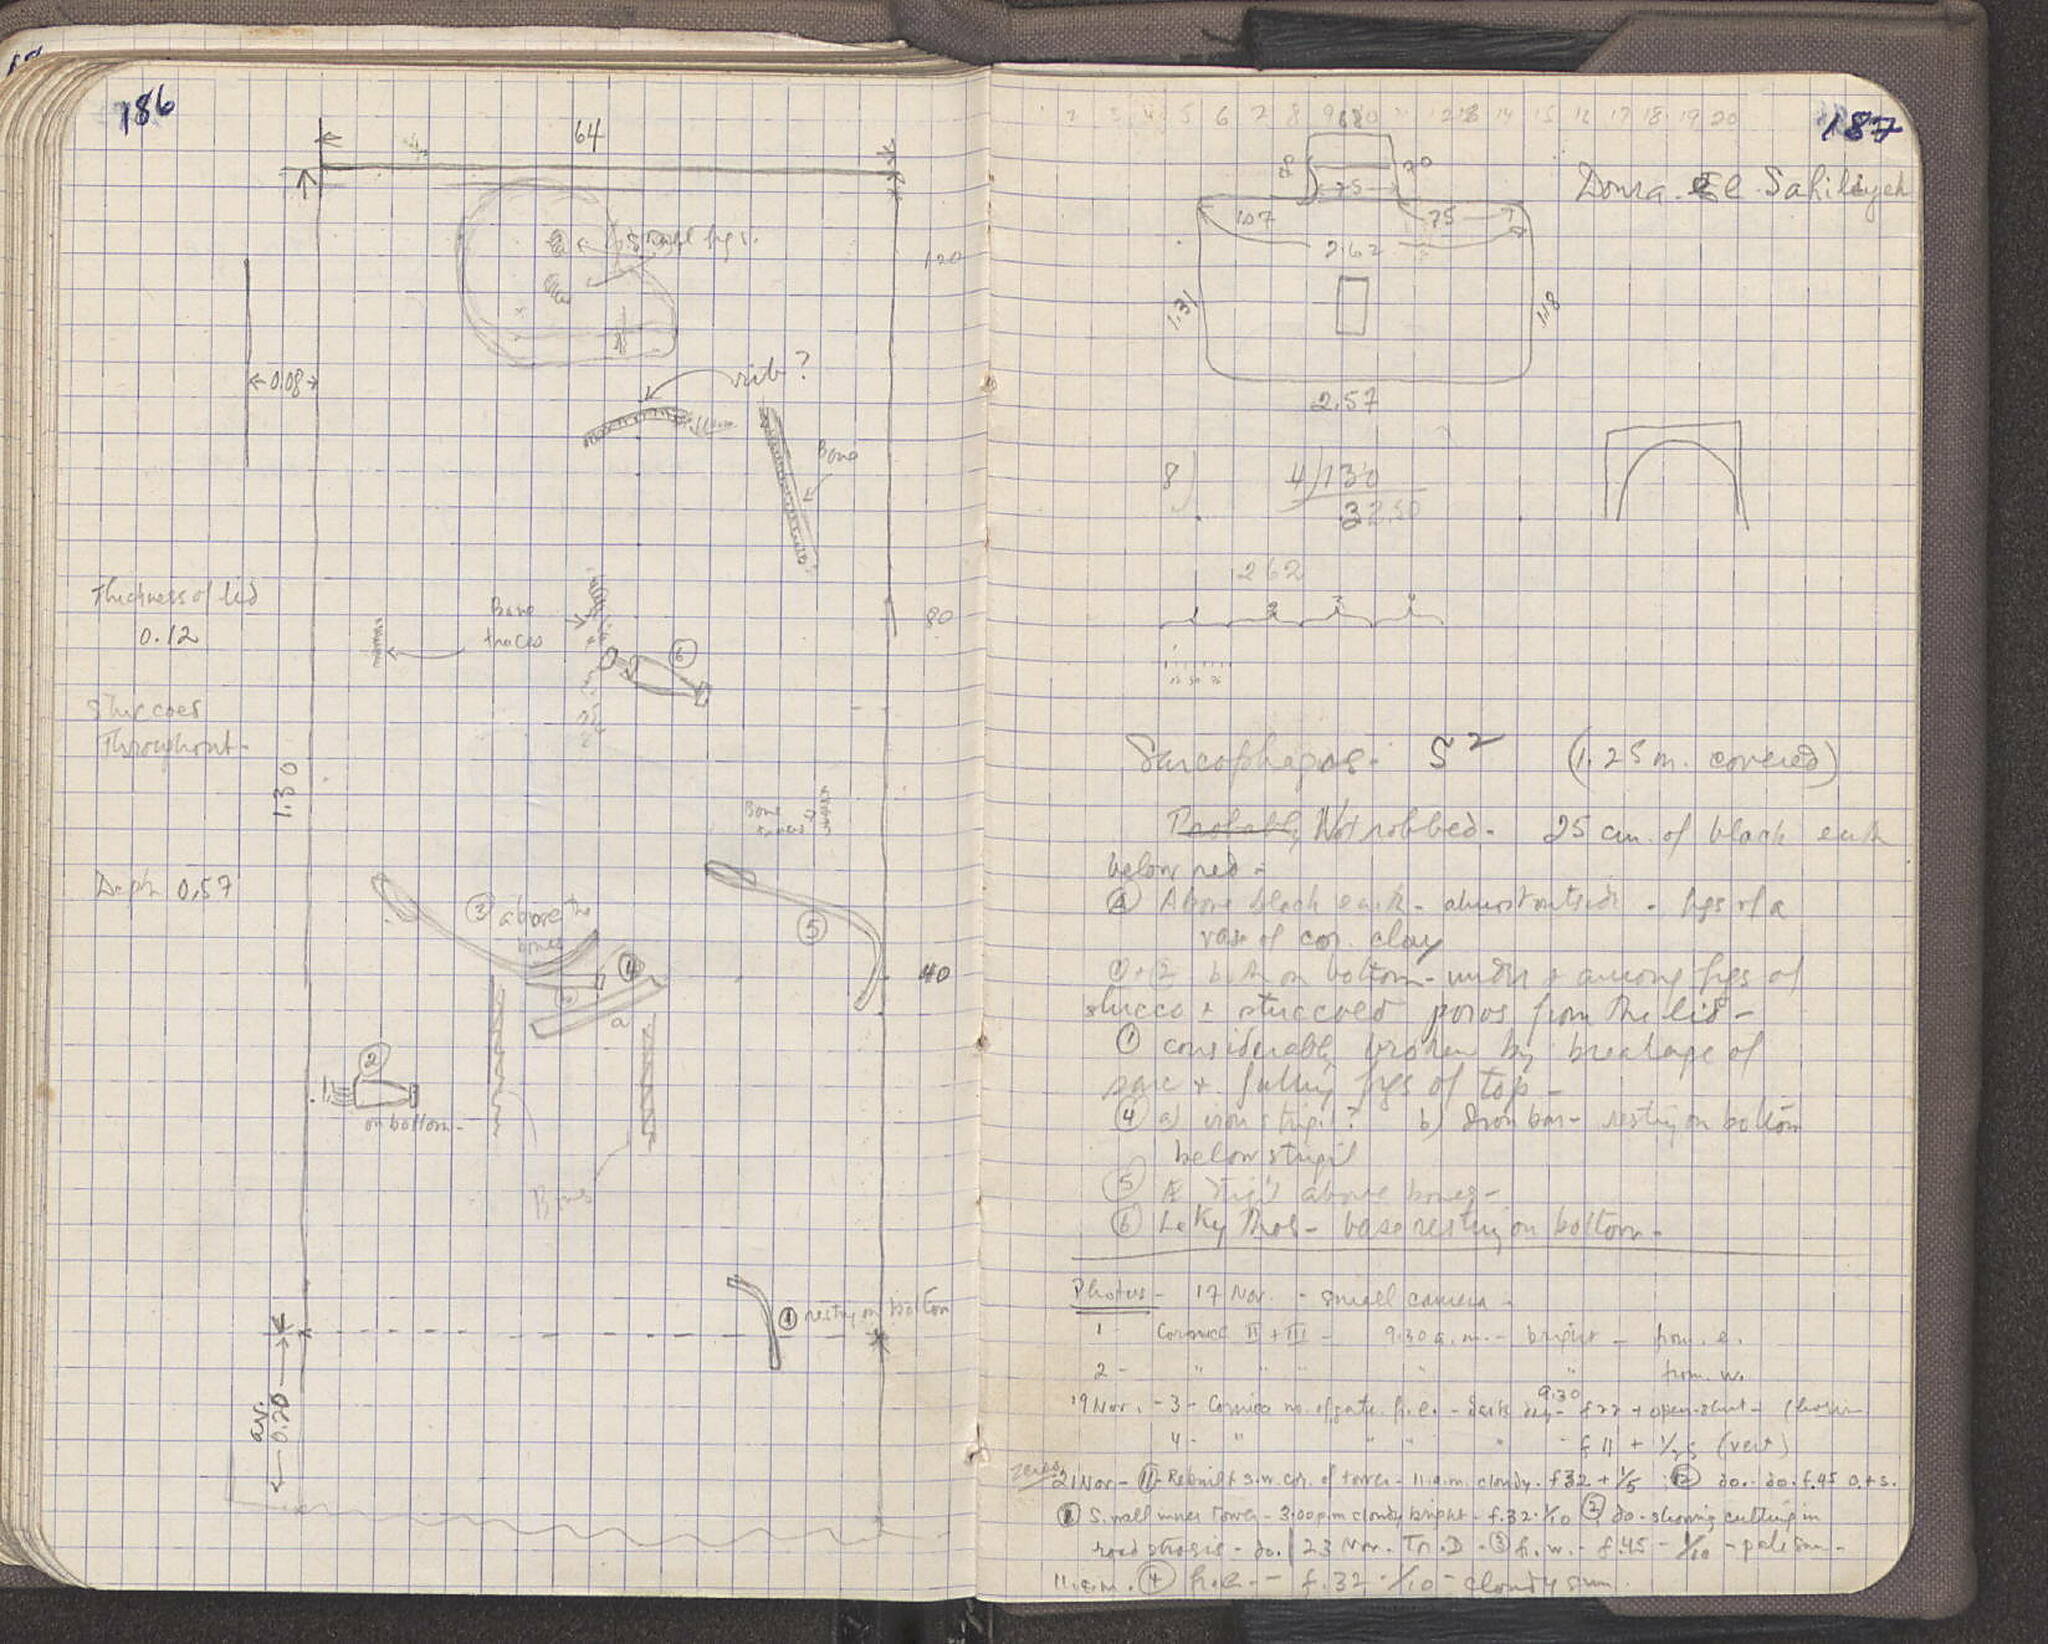 186
64
small fgs.
120
0.08
rib?
Bone
Thickness of lid
0.12
Bone
traces
80
6
Stuccoed
Throughout-
1.30
Bone
traces
Depth 0.57
3 above the
bones
5
4
b
40
a
2
on bottom-
Bones
1 resting on bottom
av.
0.20
187
2 3 4 5 6 7 8 9 10 11 12 13 14 15 16 17 18 19 20
8
70
75
Doura El Sahiliyeh
107
75
2.62
1.31
1.18
2.57
8)
4)130
32.50
262
1 2 3 4
Sarcophagos- S2 (1.25 m. covered)
Probably Not robbed- 25 cm. of black earth
below red-
Above black earth- almost outside - fgs of a
vase of cor. clay
1+2 both on bottom- under + among fgs of
stucco + stuccoed poros from the lid-
1 considerably broken by breakage of
sarc + falling fgs of top-
4 a) iron strigil? b) Iron bar- resting on bottom
below strigil
5 Æ strigil above bones-
6 Lekythos- base resting on bottom-
Photos- 17 Nov. - small camera-
1- Cornice II + III - 9.30 a.m.- bright - from e.
2- " " " " " from w.
9.30
19 Nov. - 3 - Cornice no. of gate f. e. - dark day- f22 + open-shut-
4- " " " " - f 11 + 1/25 (vert)
Zeiss
21 Nov- 11 Rebuilt s.w. cor. of tower- 11 a.m. cloudy- f32 + 1/5 : 12 do. do. f.45 o.+s.
1 Small inner tower- 3.00 p.m cloudy bright- f.32. 1/10 2 do- showing cutting in
road stosis- do. | 23 Nov. Tr. D - 3 f. w. - f.45 - 1/10 - pale sun-
11. a.m. 4 f. e. - f.32 - 1/10 - cloudy sun.